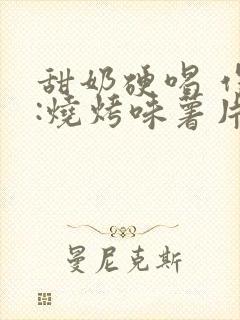 甜奶硬唱
:燒烤味薯片
曼尼克斯